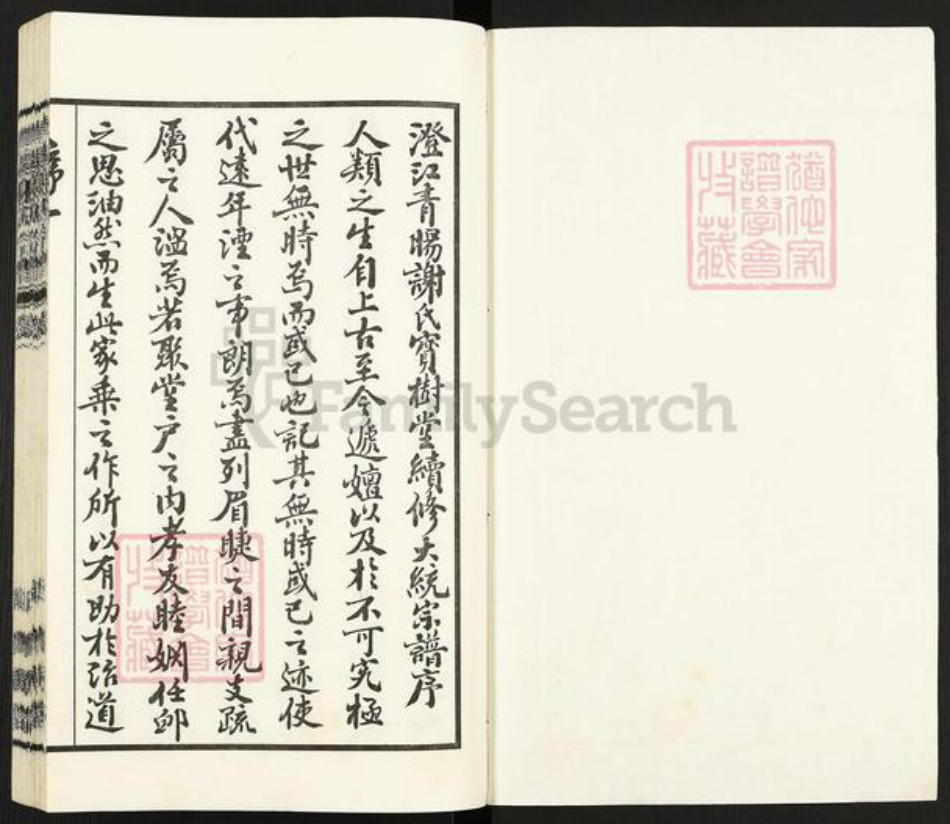 澄江青暘謝氏寶樹堂續修大統宗譜序
人類之生自上古至今遞嬗以及於不可究極
之世無時焉而或已也記其無時或已之迹使
代遠年湮之事朗焉盡列眉睫之間親支疏
屬之人藹焉若聚堂戶之內孝友睦婣任卹
之思油然而生此家乘之作所以有助於治道
序
一
猶他家
譜學會
收藏
猶他家
譜學會
收藏
FamilySearch